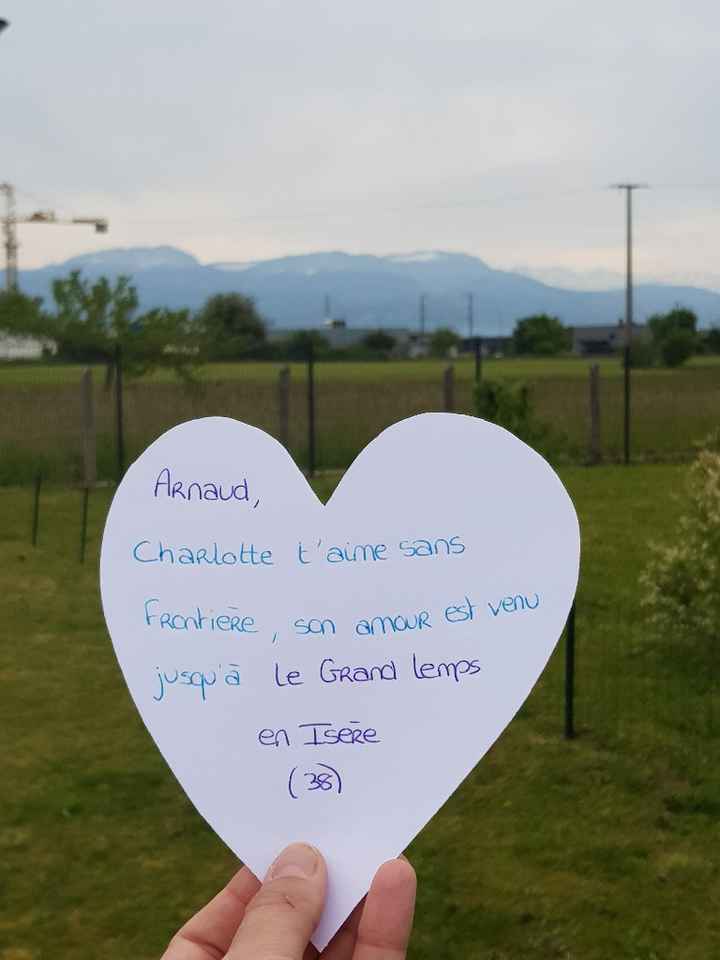 Arnaud,
Charlotte t'aime sans
Frontière, son amour est venu
jusqu'à Le Grand Lemps
en Isère
(38)